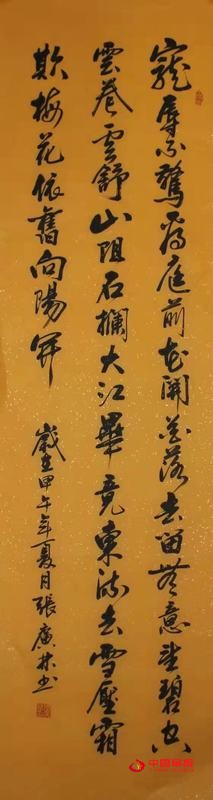 寵辱不驚看庭前花開花落去留無意望碧空
雲卷雲舒山阻石攔大江畢竟東流去雪壓霜
欺梅花依舊向陽開
歲在甲午年夏月張廣林书